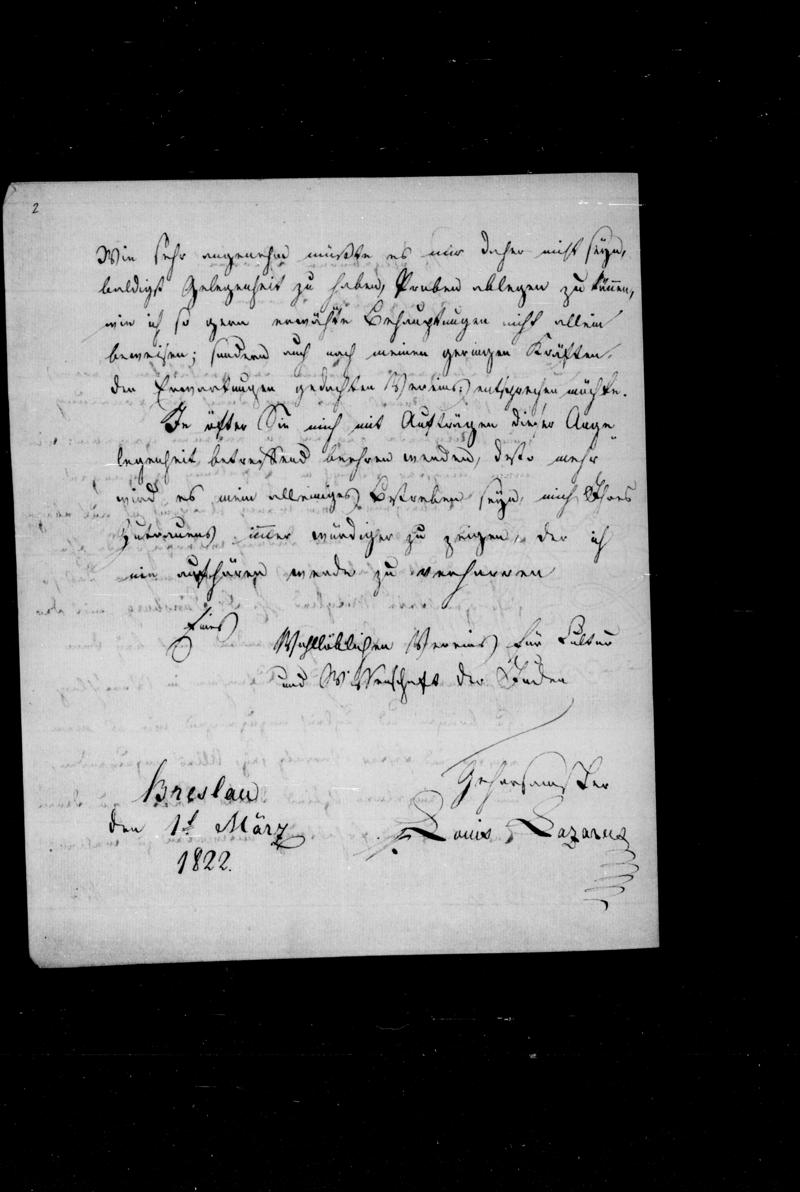 2
Wie sehr angenehm müßte es mir daher nicht seyn,
baldigst Gelegenheit zu haben, Proben ablegen zu können,
wie ich so gern erwähnte Behauptungen nicht allein
beweisen; sondern auch nach meinen geringen Kräften,
den Erwartungen gedachten Vereins, entsprechen möchte.
Je öfter Sie mich mit Aufträgen dieser Ange
legenheit betreffend beehren werden, desto mehr
wird es mein alleiniges Bestreben seyn, mich Ihres
Zutrauens immer würdiger zu zeigen, der ich
nie aufhören werde zu verharren
Eines
Wohllöblichen Vereins für Cultur
und Wissenschaft der Juden
Gehorsamster
Breslau
den 1t März
Louis Lazarus
1822.